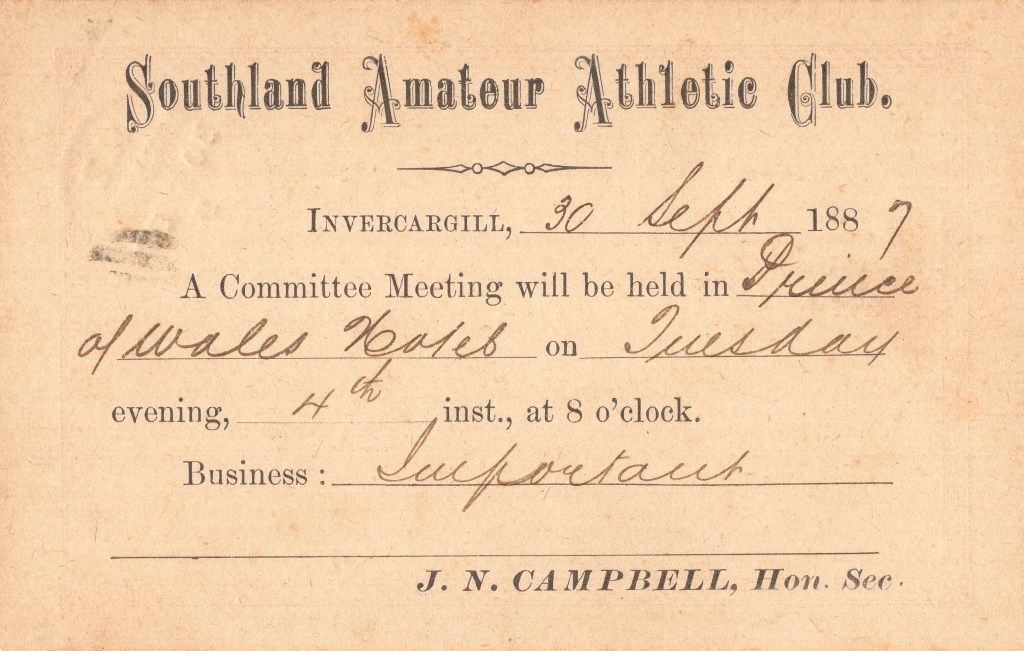 Southland Amateur Athletic Club.
Invercargill, 30 Sept 1887
A Committee Meeting will be held in Prince
of Wales Hotel on Tuesday
evening, 4th inst., at 8 o'clock.
Business: Important
J. N. CAMPBELL, Hon. Sec.